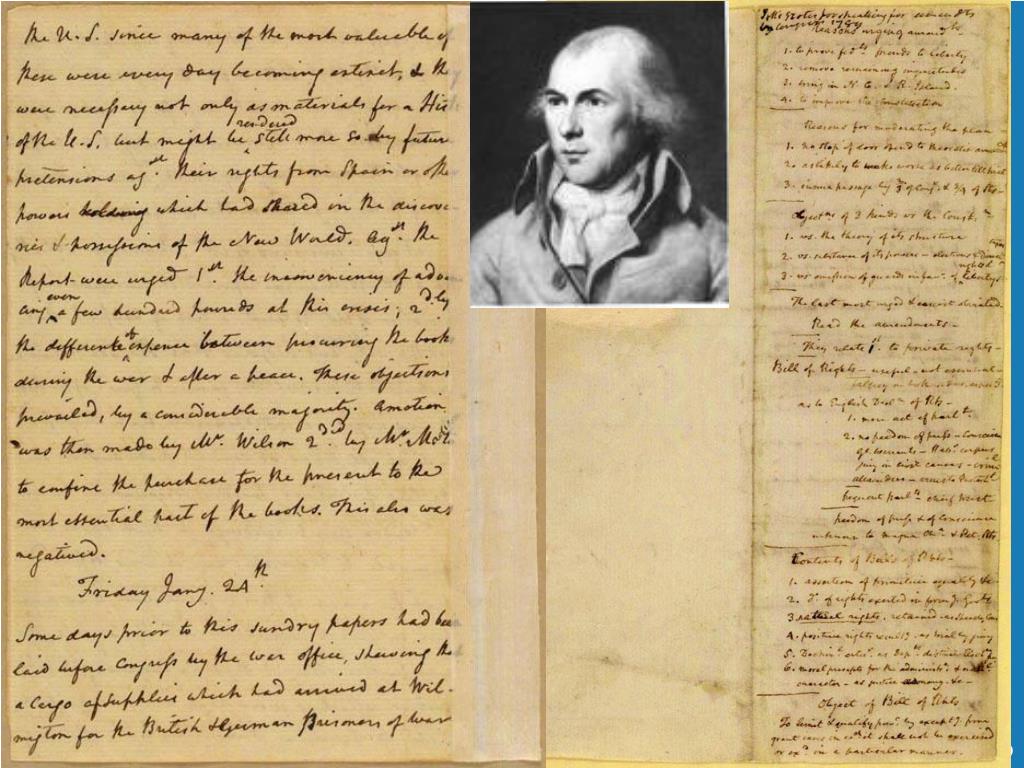 the U. S. since many of the most valuable of
these were every day becoming extinct, & th
were necessary not only as materials for a His
of the U. S. but might be rendered still more so by future
pretensions agst. their rights from Spain or othe
powers which had shared in the discove-
ries & possessions of the New World. Agst. the
Report were urged 1st. the inconveniency of adva
cing even a few hundred pounds at this crisis; 2d. by
the difference of expence between procuring the book
during the war & after a peace. These objections
prevailed, by a considerable majority. A motion
was then made by Mr. Wilson 2ded. by Mr.
to confine the purchase for the present to the
most essential part of the books. This also was
negatived.
Friday Jany. 24th
Some days prior to this sundry papers had bee
laid before Congress by the war office, shewing th
a Cargo of supplies which had arrived at Wil-
mington for the British & German Prisoners of War
Reasons urging amendts.
1. to prove fedts. friends to liberty
2. remove remaining inquietudes
3. bring in N. C. & R. Island.
4. to improve the Constitution
Reasons for moderating the plan
1. no stop if door opend to theoretic
2. as likely to make worse as better till trial
3. insure passage by 2/3 of Congs. & 3/4 of Sts-
Objectns. of 3 kinds vs. the Constn.
1. vs. the theory of its structure
2. vs. substance of its powers - elections &
3. vs omission of guards in favr. of rights & liberty
The last most urged & easiest obviated
Read the amendments-
They relate 1st. to private rights-
Bill of Rights - useful - not essential -
as to English Decln. of Rts-
1. mere act of parlt.
2. no freedom of press - Conscience
Gl. Warrants - Habs. corpus
jury in civil causes - criml.
attainders - arms to Protests.
frequent Parlts - chief trust
freedom of press & of conscience
unknown to Magna Cha. & Pet. Rts.
Contents of Bill of Rhts-
1. assertion of primitive equality &c
2. do. of rights exerted in formg. of Govts.
3. natural rights. retained as speech, Con
4. positive rights resultg. as trial by jury
5. Doctrinl. artics. as Deps. distinct
6. moral precepts for the administr. & natl.
character - as justice - œconomy - &c-
Object of Bill of Rhts
To limit & qualify powr. by exceptg. from
grant cases in wch. it shall not be exercised
or exd. in a particular manner.